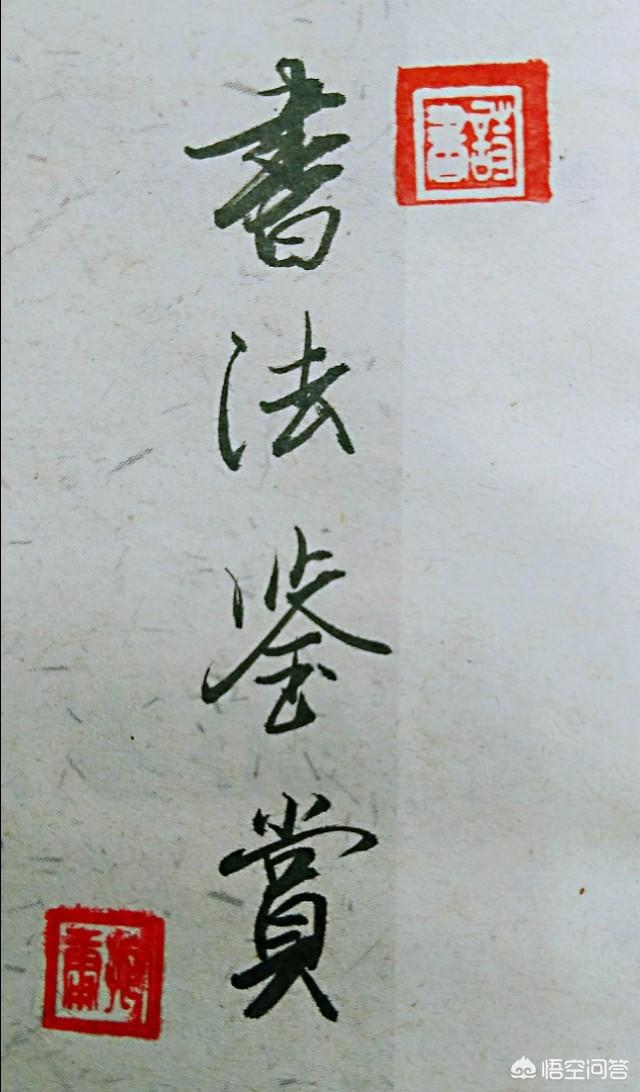 書法鉴賞
悟空问答